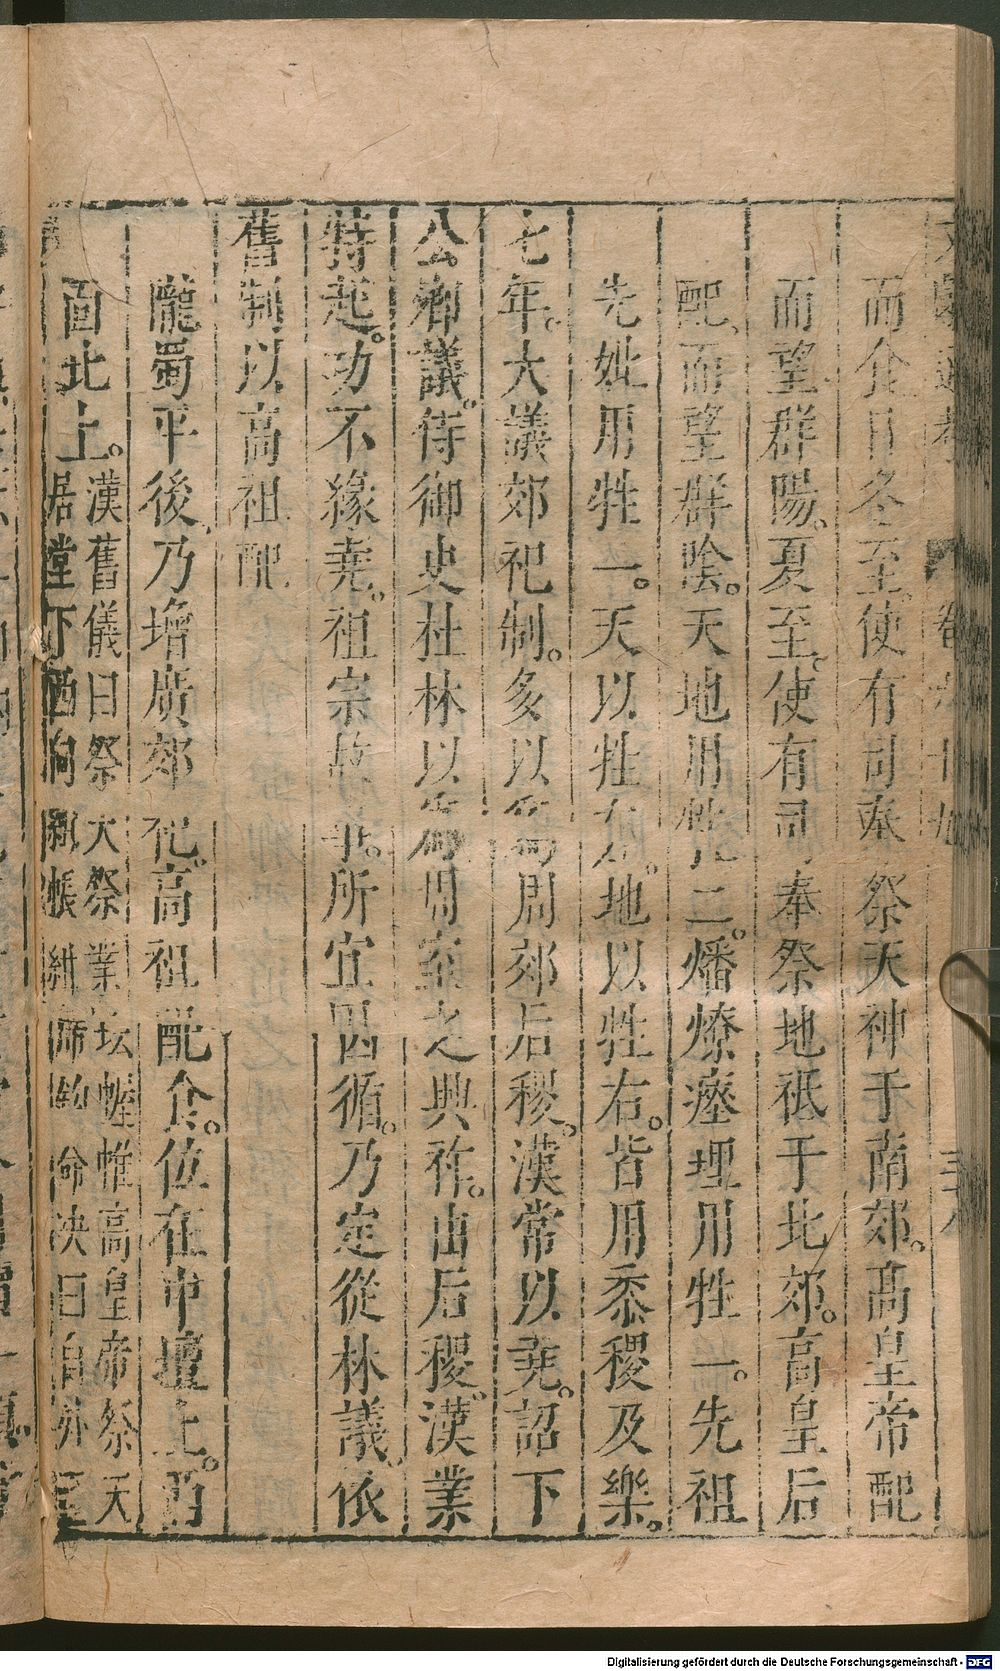 而仚日冬至使有司奉祭天神于南郊。高皇帝配
而望群陽。夏至使有司奉祭地祇于北郊。高皇后
配、而望群陰。天地用牲二。燔燎瘞埋用牲一。先祖
先妣用牲一。天以牲左。地以牲右。皆用黍稷及樂。
七年。大議郊祀制。多以爲周郊后稷。漢常以堯。詔下
公卿議。侍御史杜林以爲周室之興祚。由后稷。漢業
特起。功不緣堯。祖宗故事。所宜因循。乃定從林議、依
舊制以高祖配
隴蜀平後、乃增廣郊祀。高祖配食。位在中壇上。西
面北上。
漢舊儀曰祭天祭業坛幄帷高皇帝祭天
居堂下酉向紺帳紺席
Digitalisierung gefördert durch die Deutsche Forschungsgemeinschaft - DFG